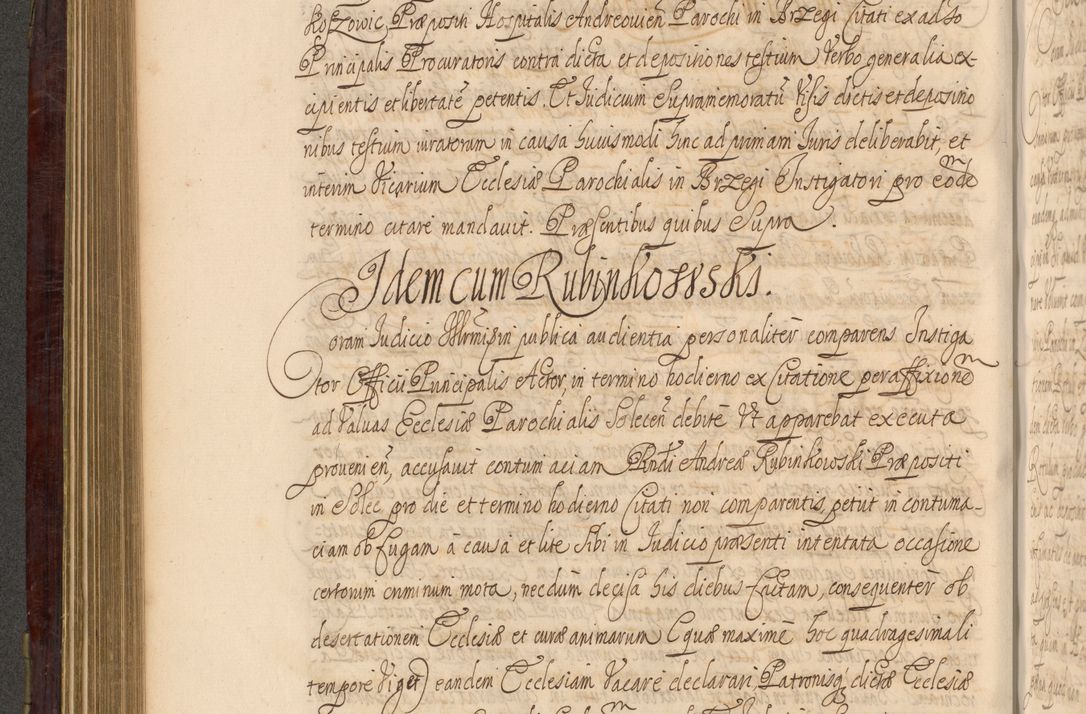 Kożowic, Præpositi Hospitalis Andreovien̄ Parochi in Brzegi Citati ex adso
Principalis Procuratoris contra dicta et depositiones testium verbo generali ex-
cipientis et libertatē petentis. Et Iudicium Supramemoratū Visis dictis et depositio
nibus testium iuratorum in causa huiusmodi hinc ad primam Iuris deliberabit, et
interim Vicarium Ecclesiæ Parochialis in Brzegi Instigatori pro eodem
termino citare mandavit. Præsentibus quibus Supra.
Idem cum Rubinkowski.
Coram Iudicio in publica audientia personalitēr comparens Instiga
tor Officii Principalis Actor, in termino hodierno ex Citatione per affixionem
ad Valvas Ecclesiæ Parochialis Solecen̄ debitē Vt apparebat executa
provenien̄, accusavit contumaciam Rndi Andreæ Rubinkowski Præpositi
in Solec pro die et termino hodierno Citati non comparentis, petiit in contuma-
ciam ob fugam à causa et lite Sibi in Iudicio præsenti intentata occasione
certorum criminum mota, necdum decisa his diebus factam, consequentēr ob
desertationem Ecclesiæ et curæ animarum (quæ maximè hoc quadragesimali
tempore Viget) eandem Ecclesiam Vacare declarari, Patronisq dictæ Ecclesiæ